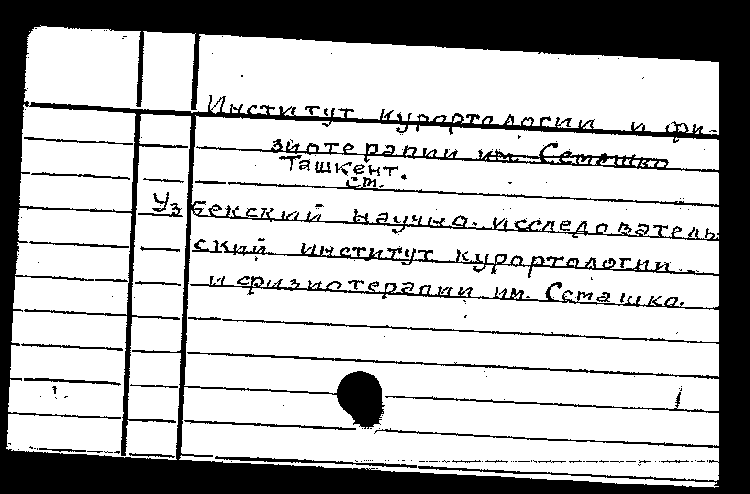 Институт курортологии и фи-
зиотерапии им. Семашко
Ташкент.
см.
Узбекский научно-исследователь
ский институт курортологии
и физиотерапии им. Семашко.